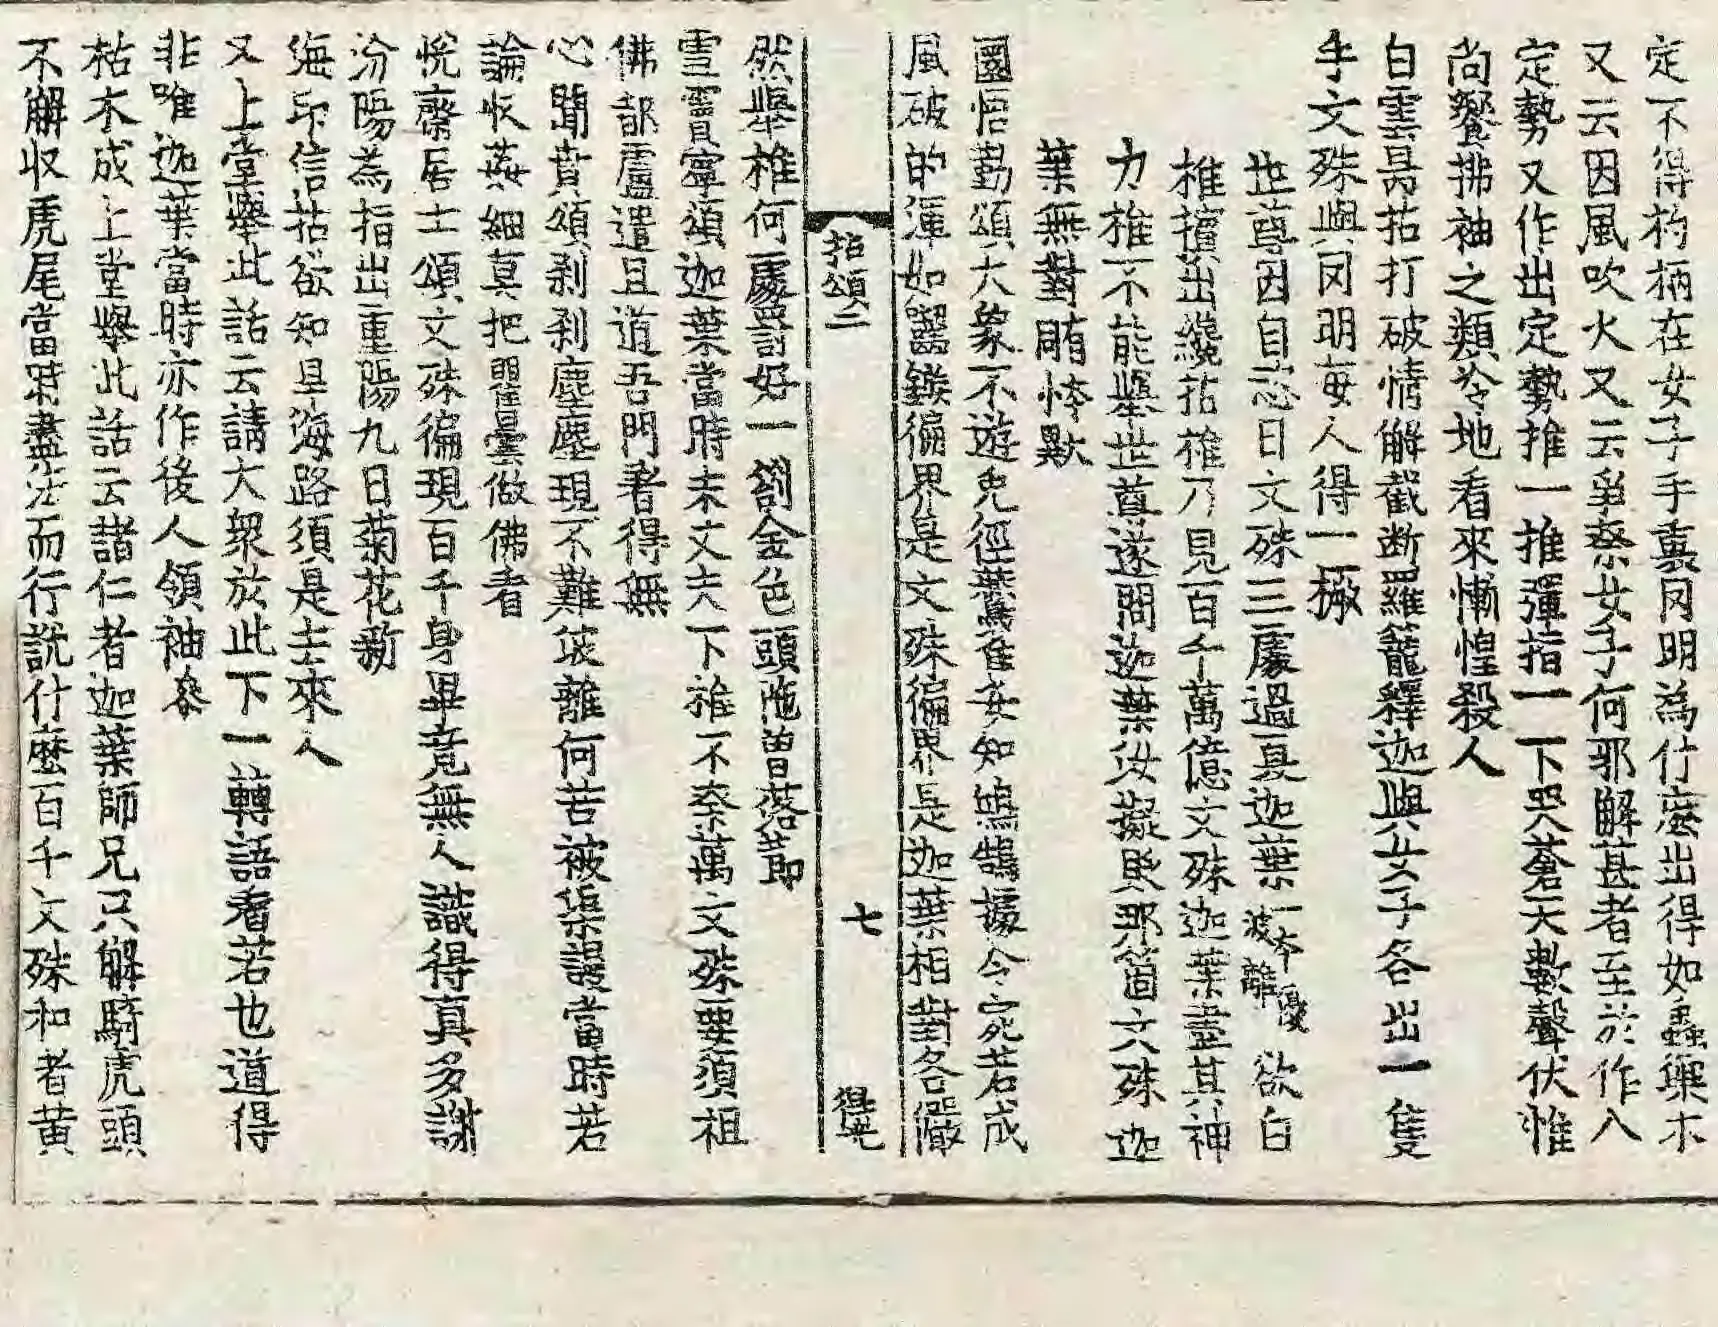 定不得杓柄在女子手裏罔明為什麽出得如蟲禦木
又云因風吹火又云爭奈女子何邪解甚者至於作入
定勢又作出定勢推一推彈指一下哭蒼天數聲伏惟
尚饗拂袖之類冷地看來慚惶殺人
白雲昺拈打破情解截断羅籠釋迦與女子各出一隻
手文殊與罔明每人得一橛
世尊因自恣日文殊三處過夏迦葉一本優波離欲白
椎擯出纔拈椎乃見百千萬億文殊迦葉盡其神
力椎不能舉世尊遂問迦葉汝擬擯那箇文殊迦
葉無對
圜悟勤頌大象不遊兎徑鷰雀安知鴻鵠據令宛若成
風破的渾如齧鏃徧界是文殊徧界是迦葉相對各儼
拈頌二 七
然舉椎何處罰好一劄金色頭陁曽落節
雪竇寧頌迦葉當時未丈夫下椎不柰萬文殊要須祖
佛都盧遣且道吾門著得無
心聞賁頌刹刹塵塵現不難波離何苦被渠謾當時若
論收姦細莫把瞿曇做佛看
悅齋居士頌文殊徧現百千身畢竟無人識得真多謝
汾陽為指出重陽九日菊花新
海印信拈欲知旦海路須是去來人
又上堂舉此話云請大衆於此下一轉語看若也道得
非唯迦葉當時亦作後人領袖叅
枯木成上堂舉此話云諸仁者迦葉師兄只解騎虎頭
不解収虎尾當時盡法而行説什麽百千文殊和者黃